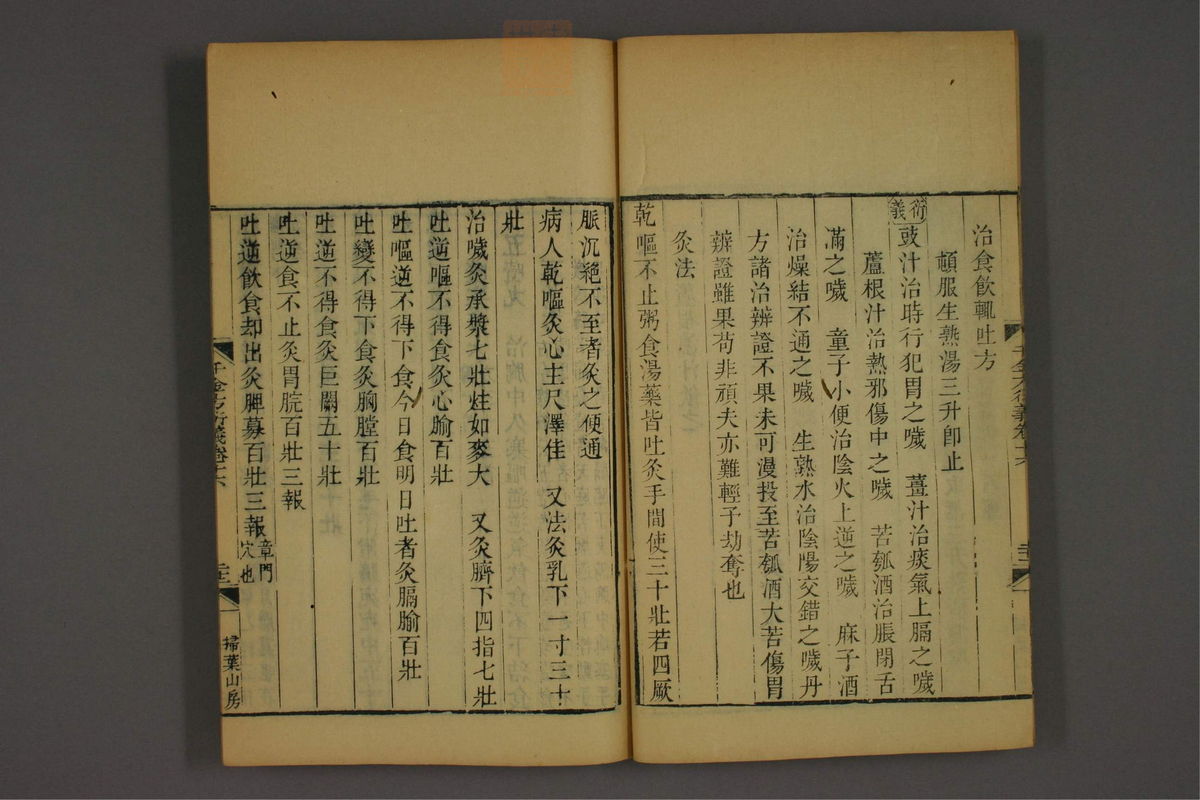 治食飲輒吐方
頓服生熟湯三升卽止
衍義
豉汁治時行犯胃之噦　薑汁治痰氣上膈之噦
蘆根汁治熱邪傷中之噦　苦瓠酒治脹閉舌
滿之噦　童子小便治陰火上逆之噦　麻子酒
治燥結不通之噦　生熟水治陰陽交錯之噦丹
方諸治辨證不果未可漫投至苦瓠酒大苦傷胃
辨證雖果苟非頑夫亦難輕予劫奪也
灸法
乾嘔不止粥食湯藥皆吐灸手間使三十壯若四厥
脈沉絕不至者灸之便通
病人乾嘔灸心主尺澤佳　又法灸乳下一寸三十
壯
治噦灸承漿七壯炷如麥大　又灸臍下四指七壯
吐逆嘔不得食灸心腧百壯
吐嘔逆不得下食今日食明日吐者灸膈腧百壯
吐變不得下食灸胸膛百壯
吐逆不得食灸巨闕五十壯
吐逆食不止灸胃脘百壯三報
吐逆飲食却出灸脾募百壯三報章門穴也
千金方衍義卷十六
掃葉山房